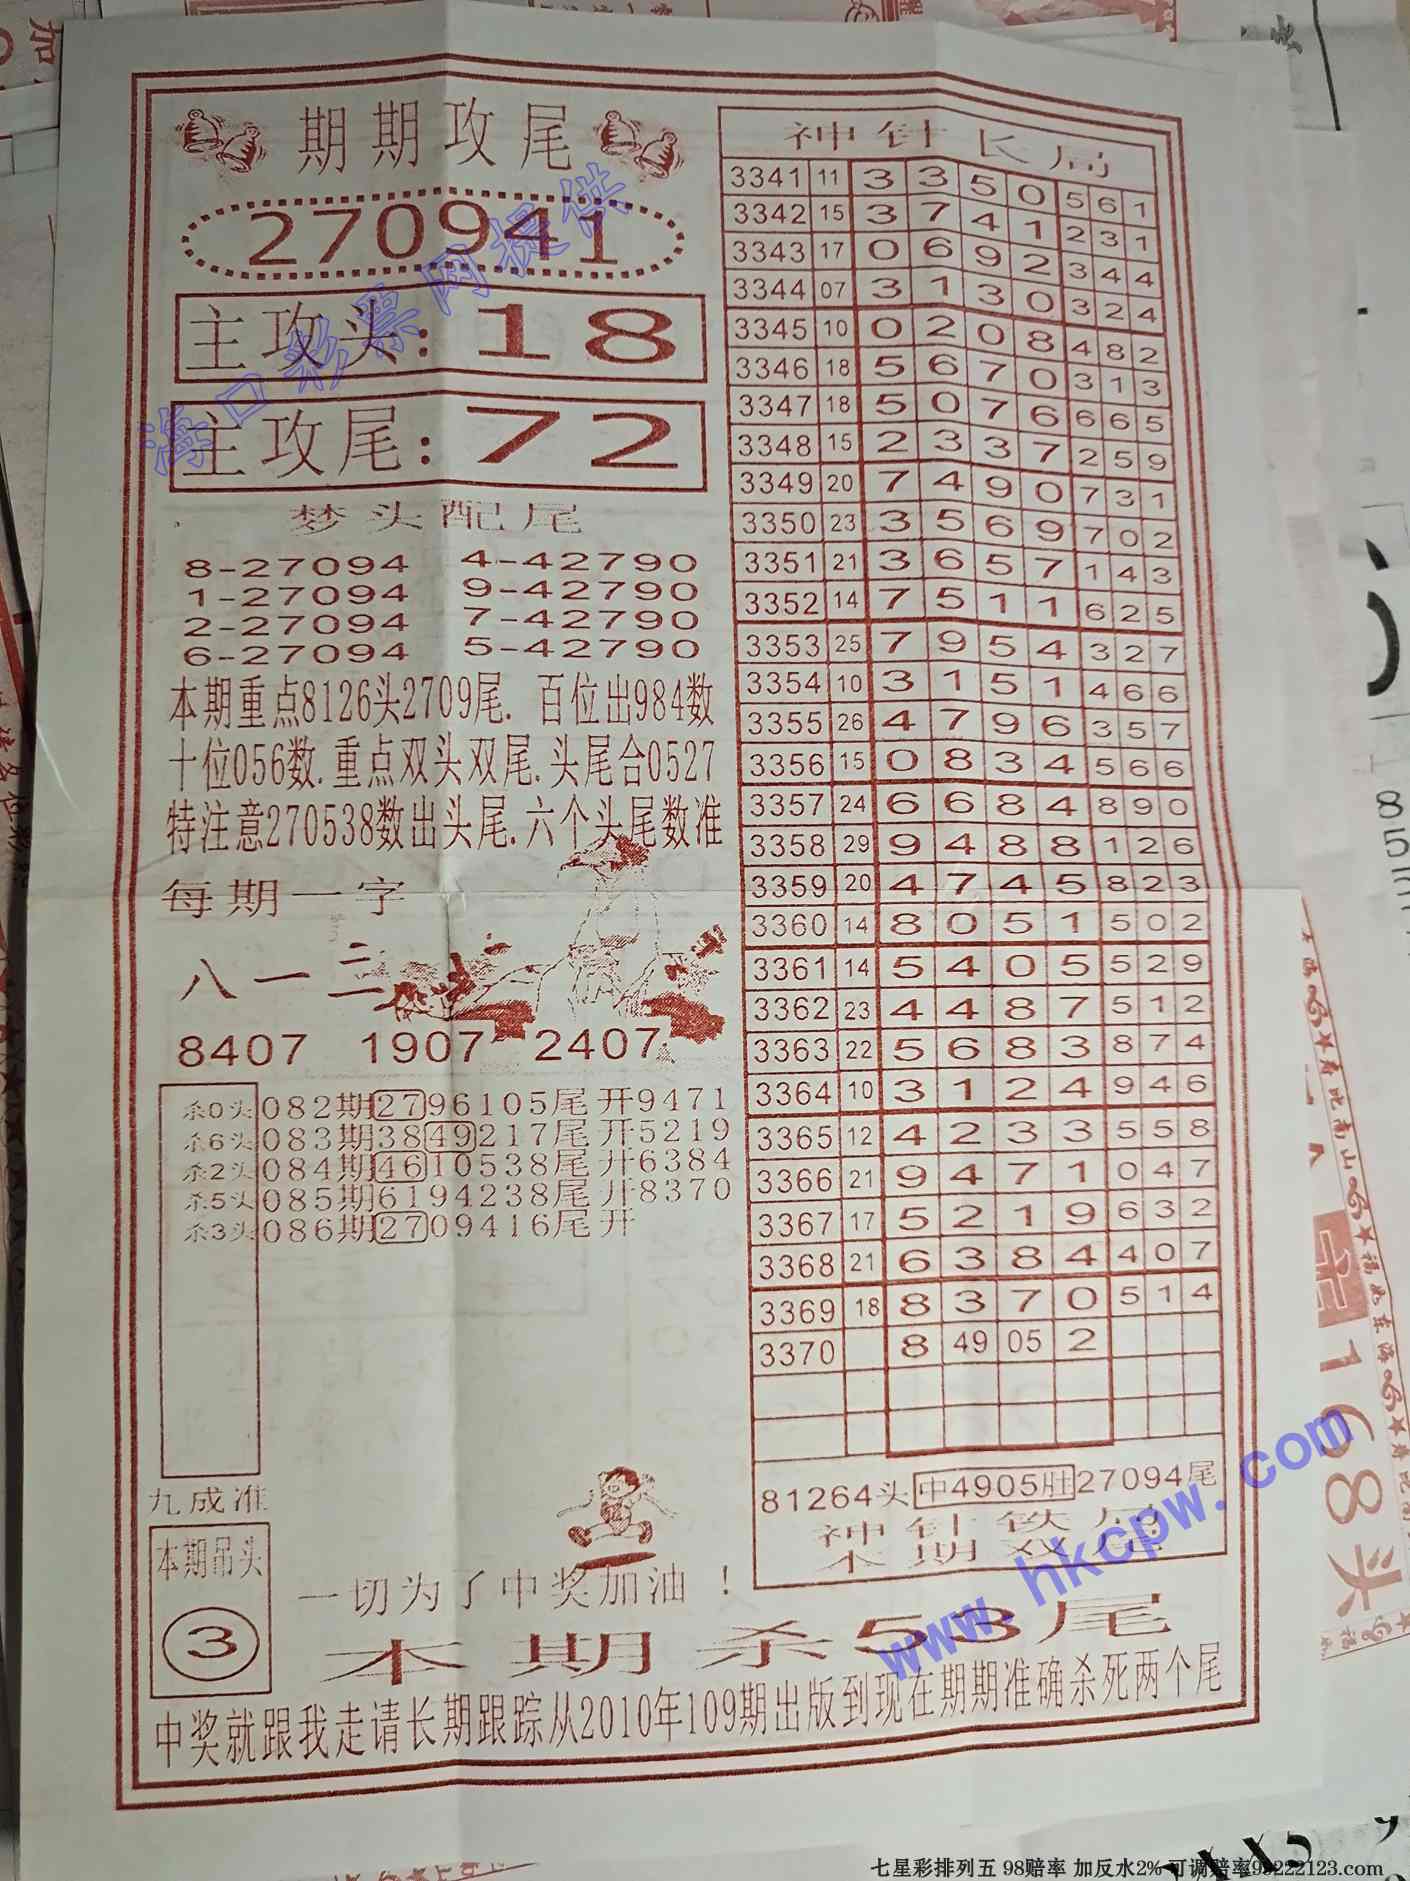 期期攻尾
270941
主攻头:18
主攻尾:72
梦头配尾
8-27094 4-42790
1-27094 9-42790
2-27094 7-42790
6-27094 5-42790
本期重点8126头2709尾.百位出984数
十位056数.重点双头双尾.头尾合0527
特注意270538数出头尾.六个头尾数准
每期一字
八一三
8407 1907 2407
杀0头082期2796105尾开9471
杀6头083期3849217尾开5219
杀2头084期4610538尾开6384
杀5头085期6194238尾开8370
杀3头086期2709416尾开
九成准
本期吊头
3
一切为了中奖加油!
神针长局
3341 11 3 3 5 0 5 6 1
3342 15 3 7 4 1 2 3 1
3343 17 0 6 9 2 3 4 4
3344 07 3 1 3 0 3 2 4
3345 10 0 2 0 8 4 8 2
3346 18 5 6 7 0 3 1 3
3347 18 5 0 7 6 6 6 5
3348 15 2 3 3 7 2 5 9
3349 20 7 4 9 0 7 3 1
3350 23 3 5 6 9 7 0 2
3351 21 3 6 5 7 1 4 3
3352 14 7 5 1 1 6 2 5
3353 25 7 9 5 4 3 2 7
3354 10 3 1 5 1 4 6 6
3355 26 4 7 9 6 3 5 7
3356 15 0 8 3 4 5 6 6
3357 24 6 6 8 4 8 9 0
3358 29 9 4 8 8 1 2 6
3359 20 4 7 4 5 8 2 3
3360 14 8 0 5 1 5 0 2
3361 14 5 4 0 5 5 2 9
3362 23 4 4 8 7 5 1 2
3363 22 5 6 8 3 8 7 4
3364 10 3 1 2 4 9 4 6
3365 12 4 2 3 3 5 5 8
3366 21 9 4 7 1 0 4 7
3367 17 5 2 1 9 6 3 2
3368 21 6 3 8 4 4 0 7
3369 18 8 3 7 0 5 1 4
3370 8 49 05 2
81264头中4905肚27094尾
神针铁局
本期双尾
本期杀53尾
中奖就跟我走请长期跟踪从2010年109期出版到现在期期准确杀死两个尾
海口彩票网提供
www.hkcpw.com
168头
七星彩排列五 98赔率 加反水2% 可调赔率95222123.com